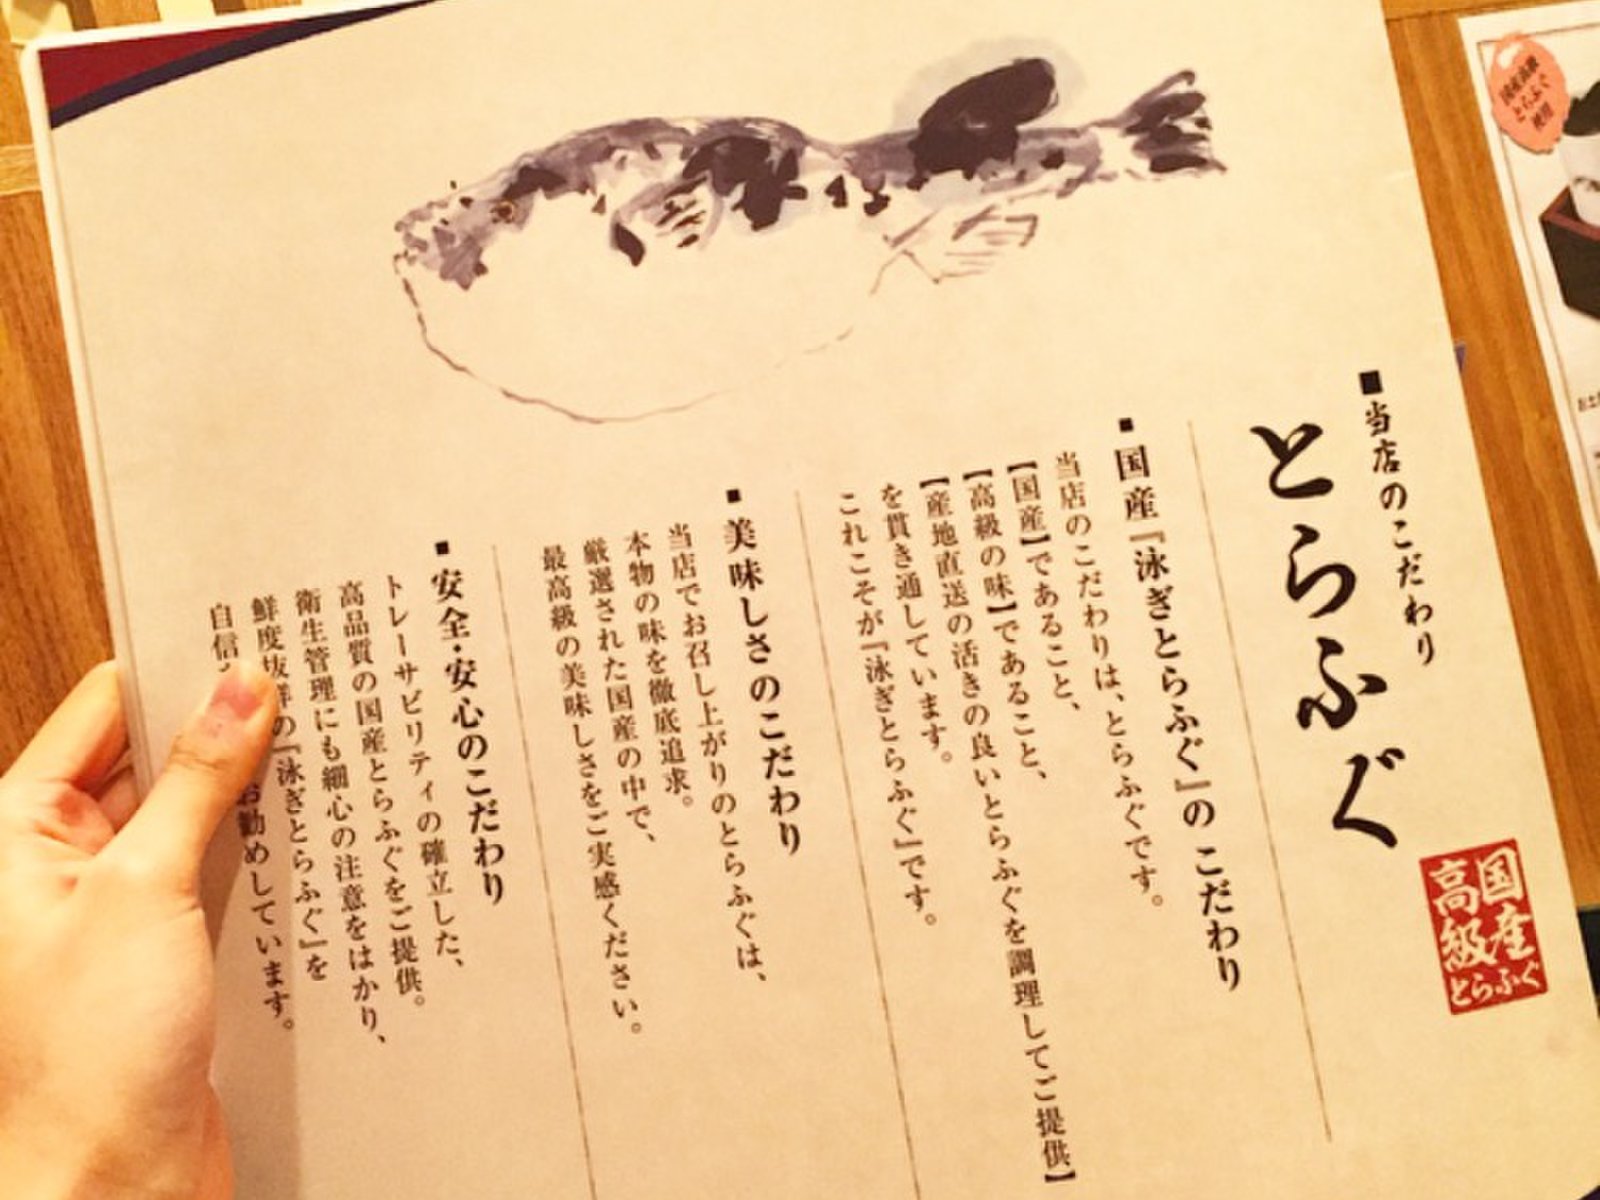 ■当店のこだわり
とらふぐ
国産
高級
とらふぐ
■国産『泳ぎとらふぐ』のこだわり
当店のこだわりは、とらふぐです。
【国産】であること、
【高級の味】であること、
【産地直送の活きの良いとらふぐを調理してご提供】
を貫き通しています。
これこそが『泳ぎとらふぐ』です。
■美味しさのこだわり
当店でお召し上がりのとらふぐは、
本物の味を徹底追求。
厳選された国産の中で、
最高級の美味しさをご実感ください。
■安全・安心のこだわり
トレーサビリティの確立した、
高品質の国産とらふぐをご提供。
衛生管理にも細心の注意をはかり、
鮮度抜群の『泳ぎとらふぐ』を
自信 お勧めしています。
国産高級
とらふぐ
使用